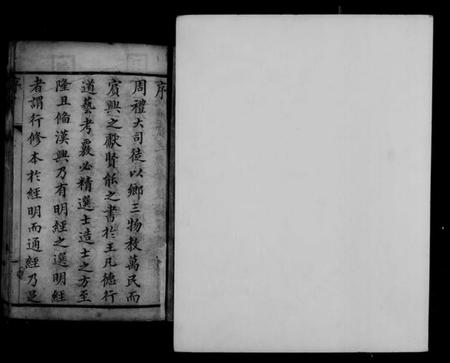 序
周禮大司徒以鄉三物教萬民而
賓興之獻賢能之書於王凡德行
道藝考覈必精選士造士之方至
隆且備漢興乃有明經之選明經
者謂行修本於經明而通經乃足
序